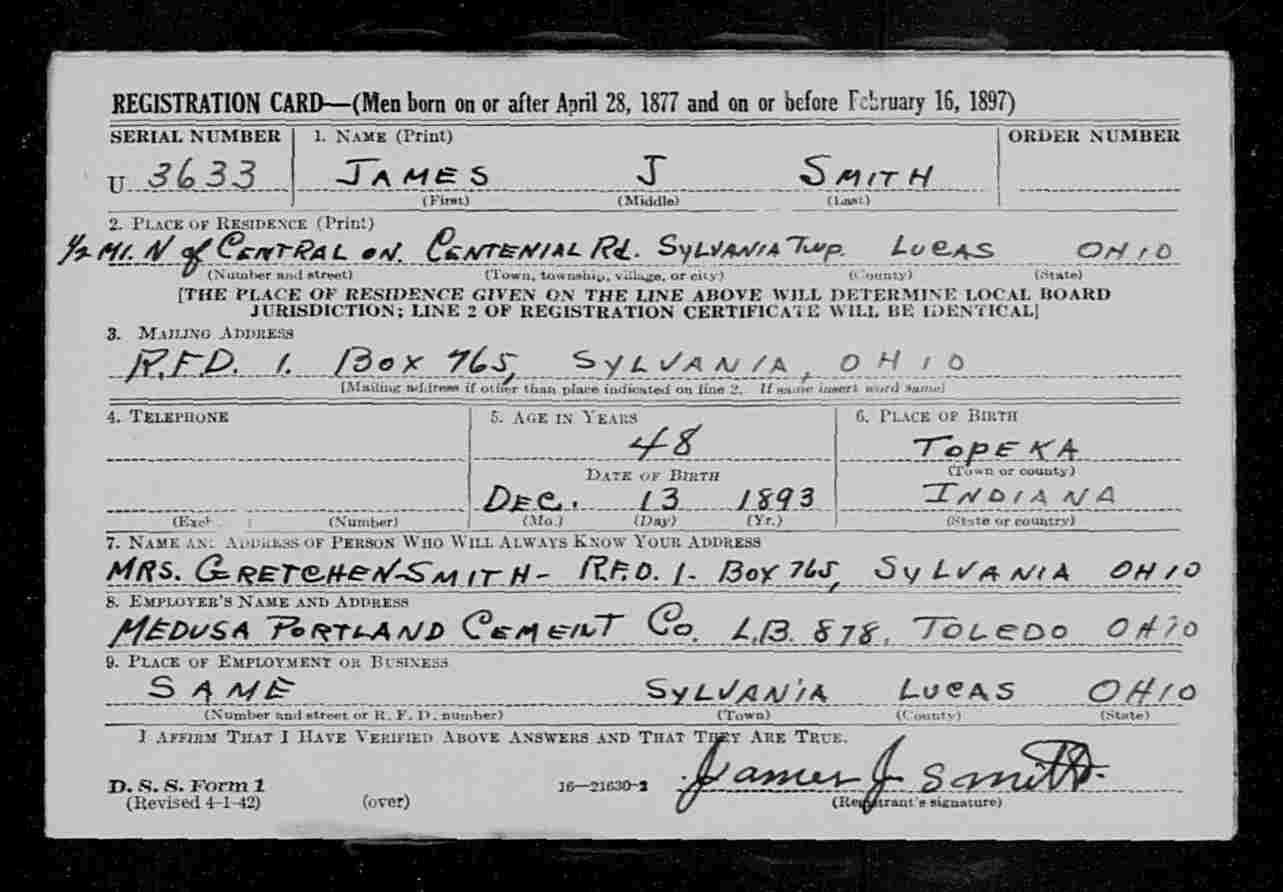 REGISTRATION CARD—(Men born on or after April 28, 1877 and on or before February 16, 1897)
SERIAL NUMBER 1. NAME (Print) ORDER NUMBER
U 3633 JAMES J SMITH
(First) (Middle) (Last)
2. PLACE OF RESIDENCE (Print)
1/2 MI. N of CENTRAL ON. CENTENIAL Rd. SYLVANIA TWP. LUCAS OHIO
(Number and street) (Town, township, village, or city) (County) (State)
[THE PLACE OF RESIDENCE GIVEN ON THE LINE ABOVE WILL DETERMINE LOCAL BOARD
JURISDICTION; LINE 2 OF REGISTRATION CERTIFICATE WILL BE IDENTICAL]
3. MAILING ADDRESS
R.F.D. 1. Box 765, SYLVANIA, OHIO
[Mailing address if other than place indicated on line 2. If same insert word same]
4. TELEPHONE 5. AGE IN YEARS 6. PLACE OF BIRTH
48 TOPEKA
DATE OF BIRTH (Town or county)
DEC. 13 1893 INDIANA
(Exch. ) (Number) (Mo.) (Day) (Yr.) (State or country)
7. NAME AND ADDRESS OF PERSON WHO WILL ALWAYS KNOW YOUR ADDRESS
MRS. GRETCHEN-SMITH- R.F.D. 1- Box 765, SYLVANIA OHIO
8. EMPLOYER'S NAME AND ADDRESS
MEDUSA PORTLAND CEMENT Co. L.B. 878, TOLEDO OHIO
9. PLACE OF EMPLOYMENT OR BUSINESS
SAME SYLVANIA LUCAS OHIO
(Number and street or R. F. D. number) (Town) (County) (State)
I AFFIRM THAT I HAVE VERIFIED ABOVE ANSWERS AND THAT THEY ARE TRUE.
James J. Smith
D. S. S. Form 1 16—21630-2
(Revised 4-1-42) (over) (Registrant's signature)